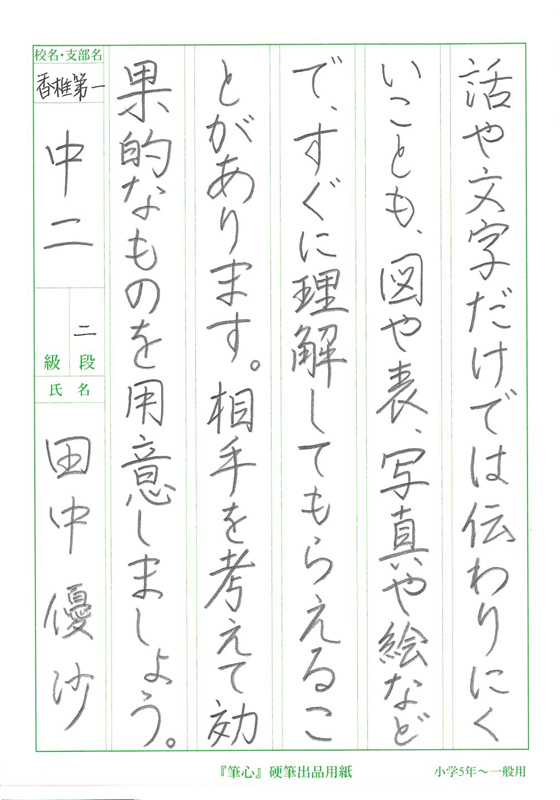 話や文字だけでは伝わりにく
いことも、図や表、写真や絵など
で、すぐに理解してもらえるこ
とがあります。相手を考えて効
果的なものを用意しましょう。
校名・支部名
香椎第一
中二
二
級 段
氏 名
田中優沙
『筆心』硬筆出品用紙
小学5年〜一般用